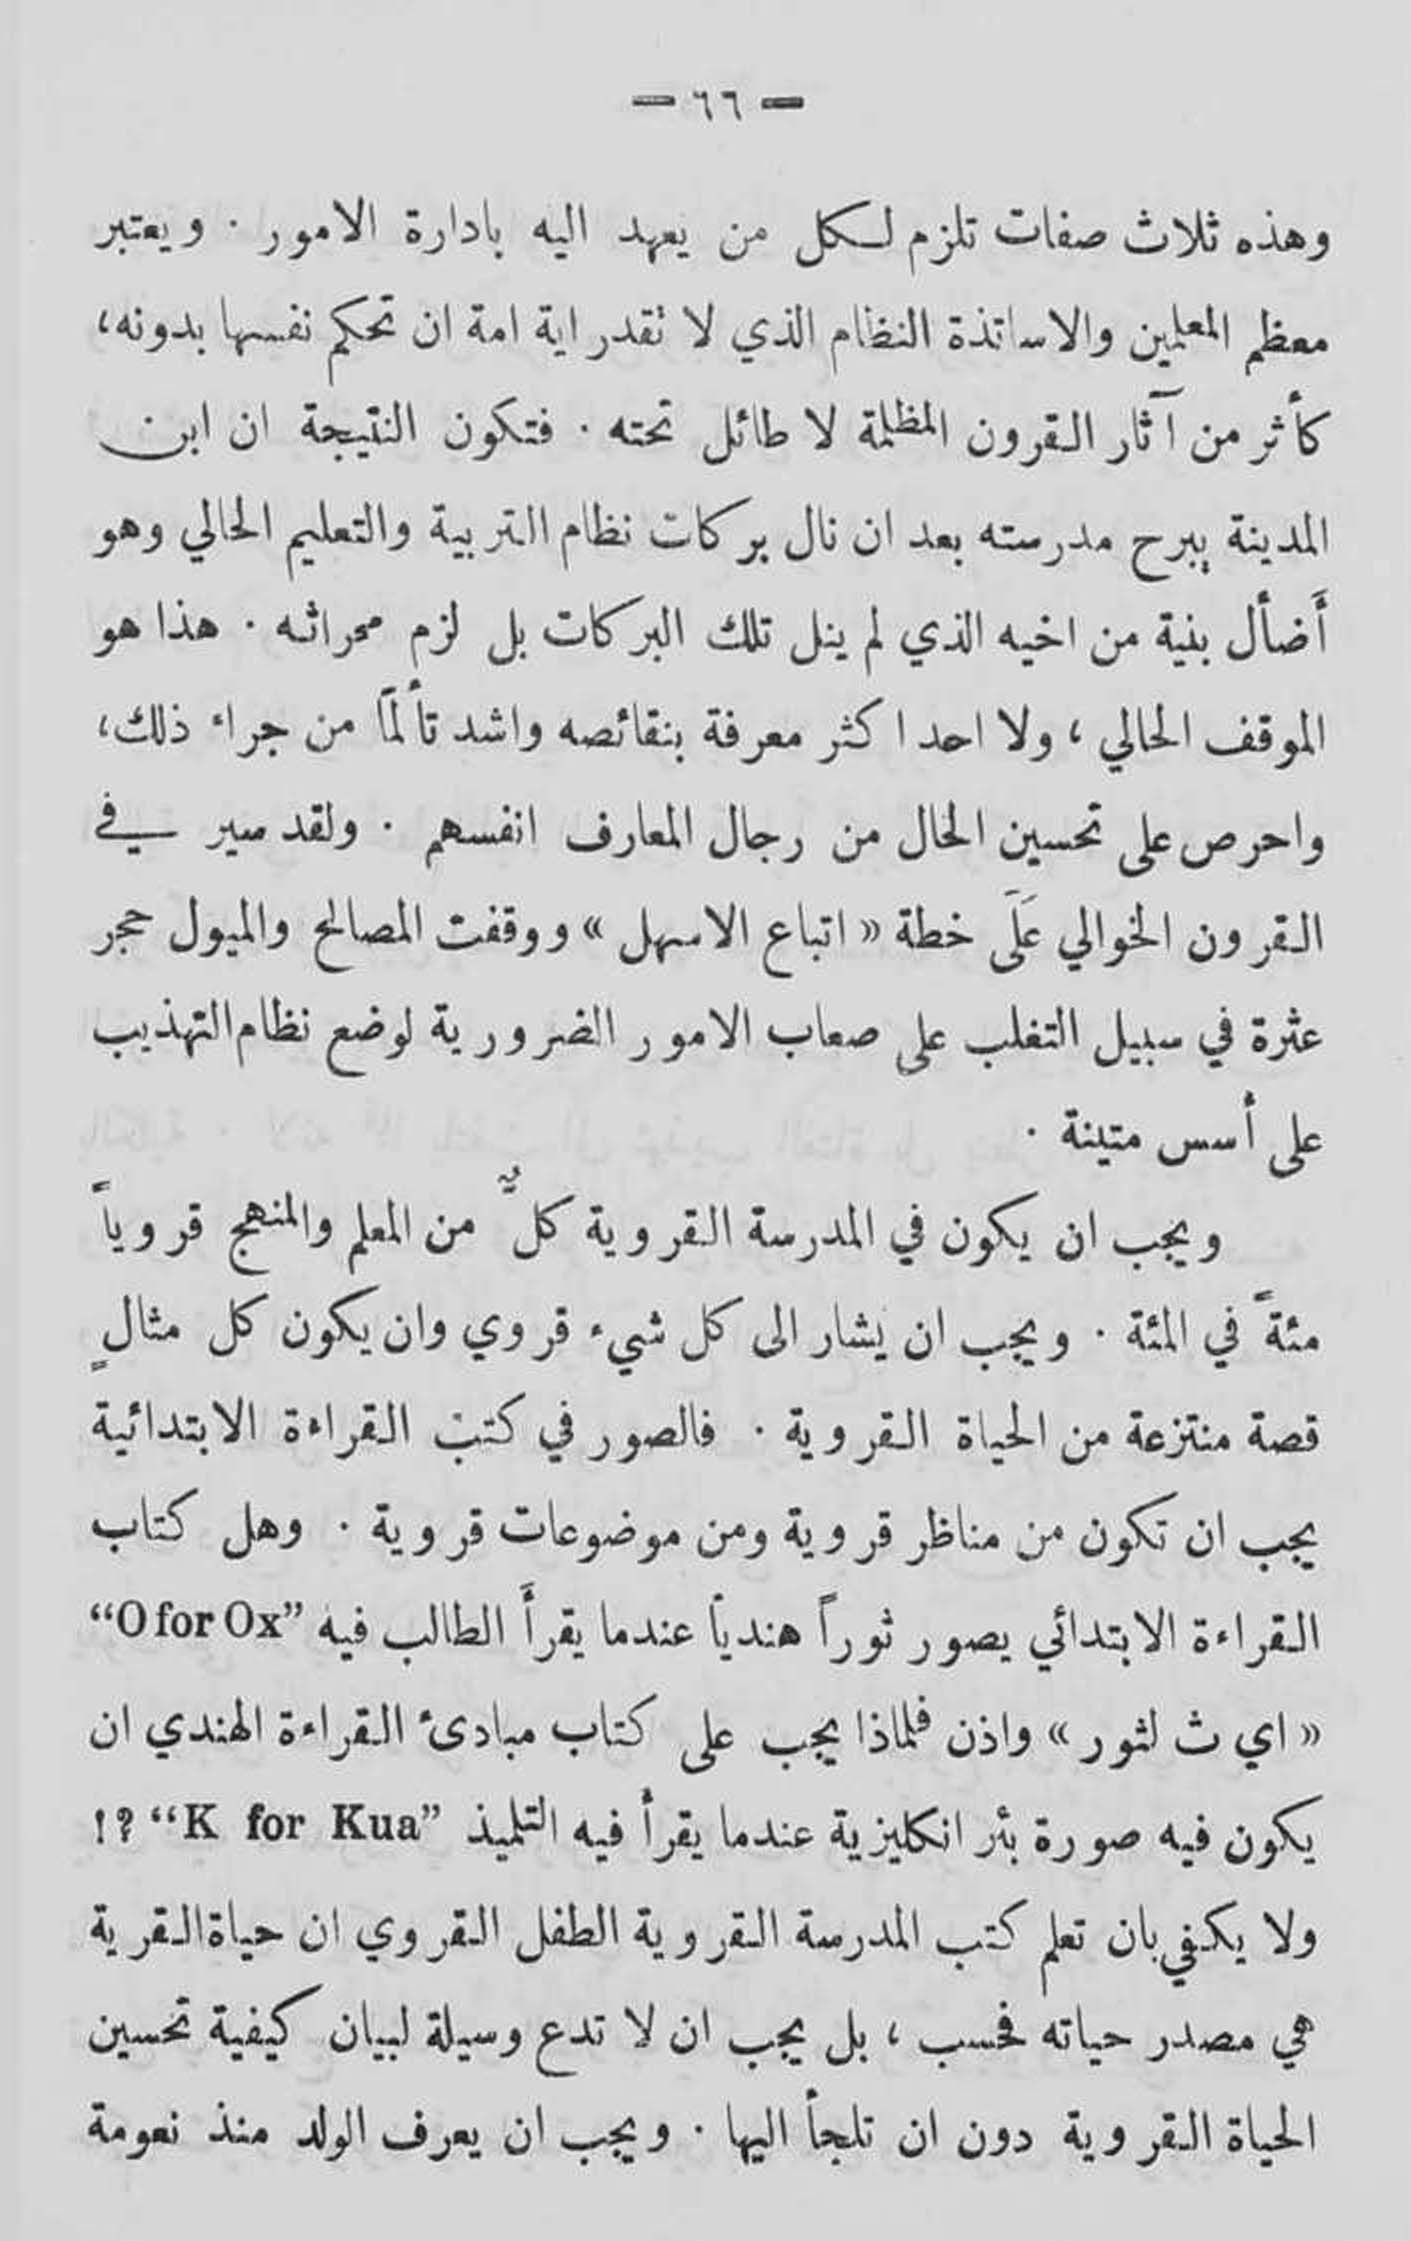 — ٦٦ —
وهذه ثلاث صفات تلزم لكل من يعهد اليه بادارة الامور . ويعتبر
معظم المعلمين والاساتذة النظام الذي لا تقدر اية امة ان تحكم نفسها بدونه،
كأثر من آثار القرون المظلمة لا طائل تحته . فتكون النتيجة ان ابن
المدينة يبرح مدرسته بعد ان نال بركات نظام التربية والتعليم الحالي وهو
أَضأل بنية من اخيه الذي لم ينل تلك البركات بل لزم محراثه . هذا هو
الموقف الحالي ، ولا احد اكثر معرفة بنقائصه واشد تألماً من جراء ذلك،
واحرص على تحسين الحال من رجال المعارف انفسهم . ولقد سير في
القرون الخوالي عَلَى خطة « اتباع الاسهل » ووقفت المصالح والميول حجر
عثرة في سبيل التغلب على صعاب الامور الضرورية لوضع نظام التهذيب
على أسس متينة .
ويجب ان يكون في المدرسة القروية كلٌّ من المعلم والمنهج قروياً
مئةً في المئة . ويجب ان يشار الى كل شيء قروي وان يكون كل مثالٍ
قصة منتزعة من الحياة القروية . فالصور في كتب القراءة الابتدائية
يجب ان تكون من مناظر قروية ومن موضوعات قروية . وهل كتاب
القراءة الابتدائي يصور ثوراً هندياً عندما يقرأَ الطالب فيه “O for Ox”
« اي ث لثور » واذن فلماذا يجب على كتاب مبادئ القراءة الهندي ان
يكون فيه صورة بئر انكليزية عندما يقرأ فيه التلميذ “K for Kua” ?!
ولا يكفي بان تعلم كتب المدرسة القروية الطفل القروي ان حياة القرية
هي مصدر حياته فحسب ، بل يجب ان لا تدع وسيلة لبيان كيفية تحسين
الحياة القروية دون ان تلجأ اليها . ويجب ان يعرف الولد منذ نعومة